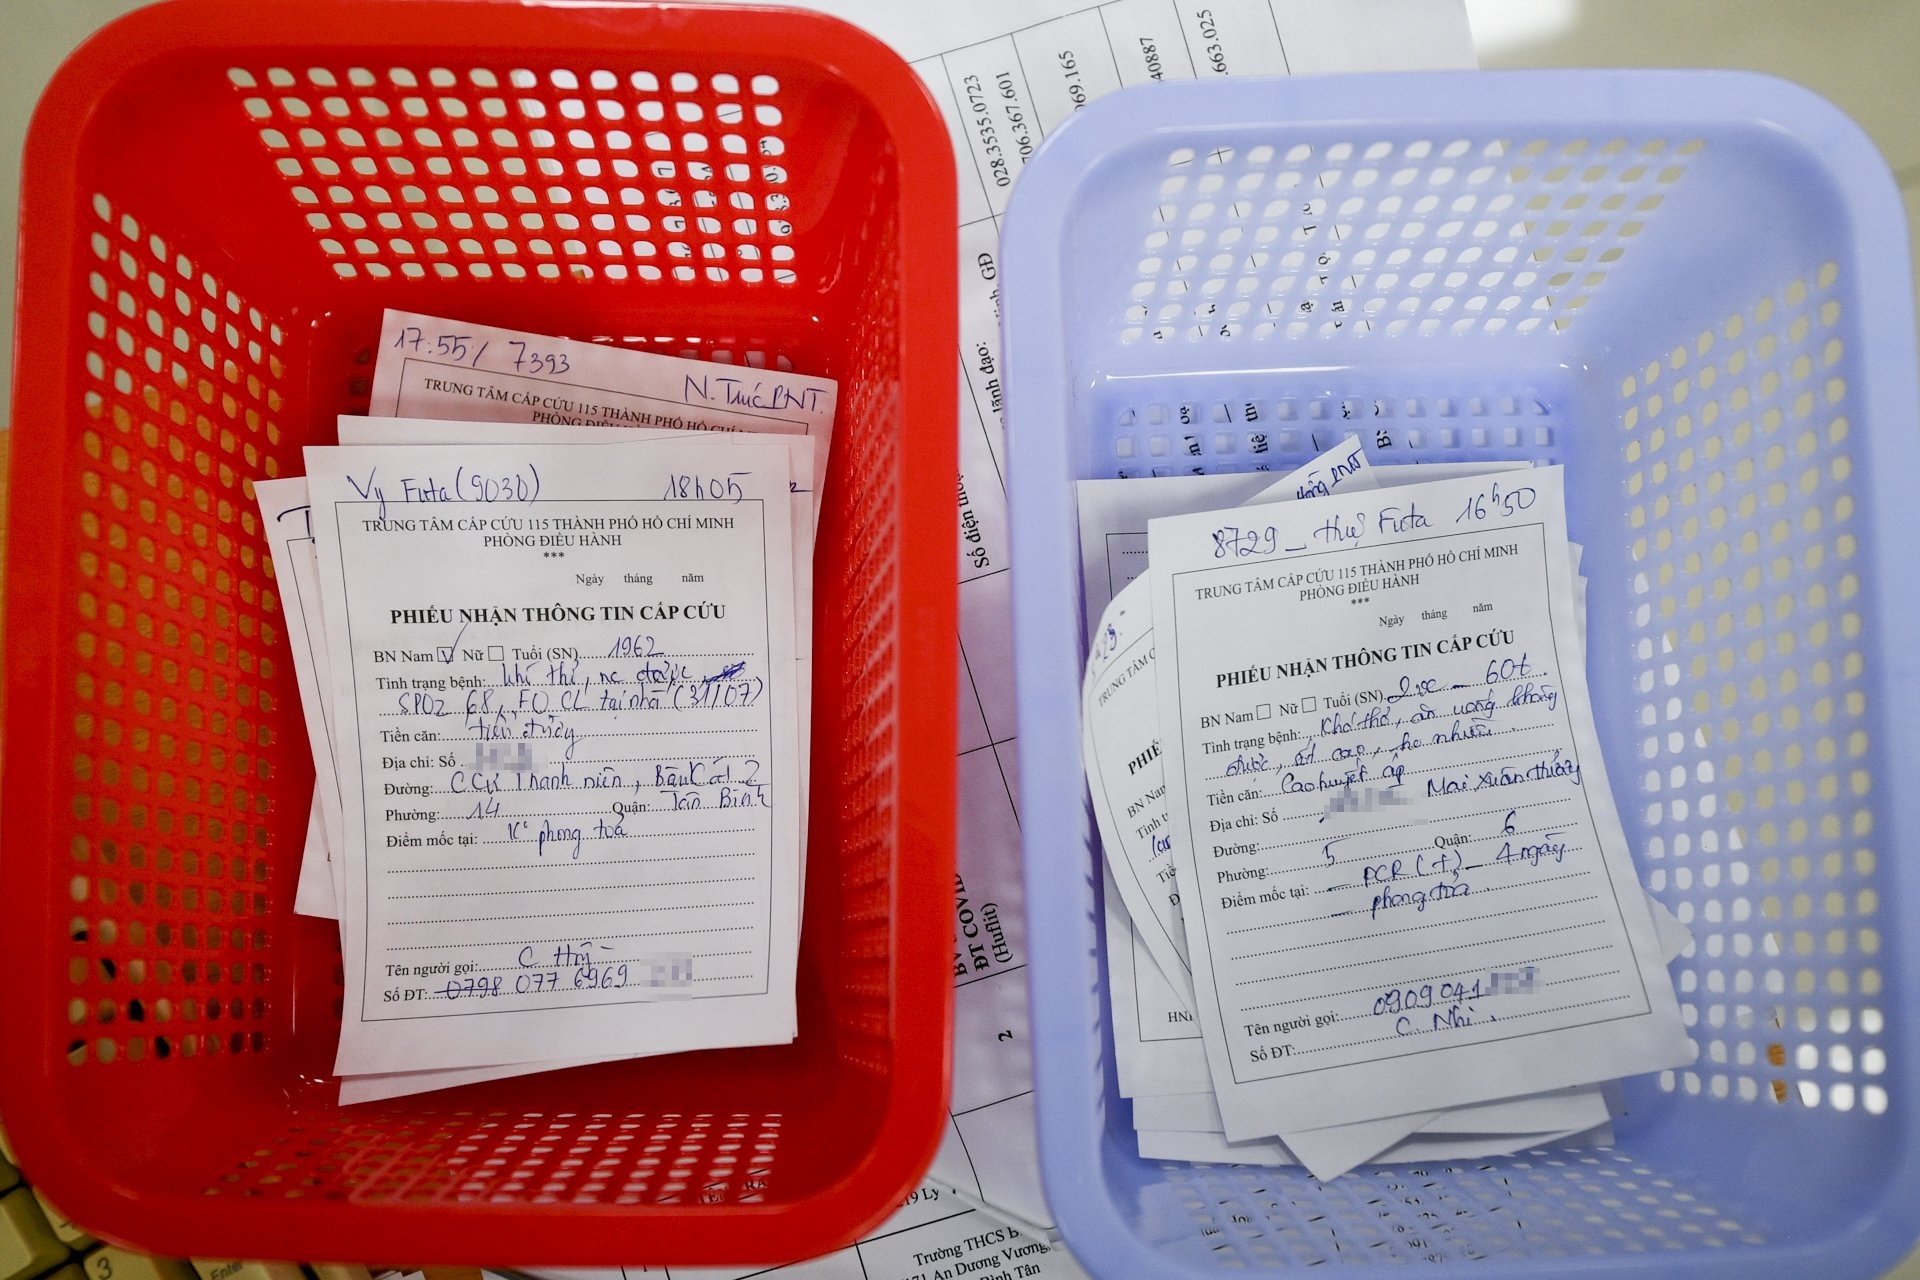 17:55/ 7393
N. Trúc PNT.
TRUNG TÂM CẤP CỨU 115 THÀNH PHỐ HỒ CHÍ
PHÒNG ĐIỀU
Vy Futa (9030) 18h05
TRUNG TÂM CẤP CỨU 115 THÀNH PHỐ HỒ CHÍ MINH
PHÒNG ĐIỀU HÀNH
***
Ngày tháng năm
PHIẾU NHẬN THÔNG TIN CẤP CỨU
BN Nam Nữ Tuổi (SN) 1962
Tình trạng bệnh: khó thở, nc được
SPO2 68, FO CL tại nhà (31/07)
Tiền căn: tiểu đường
Địa chỉ: Số
Đường: CCư Thanh niên, Bàu Cát 2
Phường: 14 Quận: Tân Bình
Điểm mốc tại: K° phong toả
Tên người gọi: C Hỷ
Số ĐT: 0798 077 6969
028.3535.0723
706.367.601
069.165
40887
.663.025
lãnh đạo:
GĐ
Số điện
ĐT COVID
(Huflit)
2
8729 _ Thuỵ Futa 16h50
TRUNG TÂM CẤP CỨU 115 THÀNH PHỐ HỒ CHÍ MINH
PHÒNG ĐIỀU HÀNH
***
Ngày tháng năm
PHIẾU NHẬN THÔNG TIN CẤP CỨU
BN Nam Nữ Tuổi (SN) 60t.
Tình trạng bệnh: Khó thở, ăn uống không
được, ho nhiều.
Tiền căn: Cao huyết áp
Địa chỉ: Số Mai Xuân Thưởng
Đường:
Phường: 5 Quận: 6
Điểm mốc tại: _ PCR (+) _ 4 ngày
_ phong toả.
Tên người gọi: 0909 041
Số ĐT: C. Nhi.
TRUNG TÂM C
PHIẾ
BN Nam
Tình t
19 Ly
Trường THCS
An Dương Vương,
Bình Tân
3
Enter